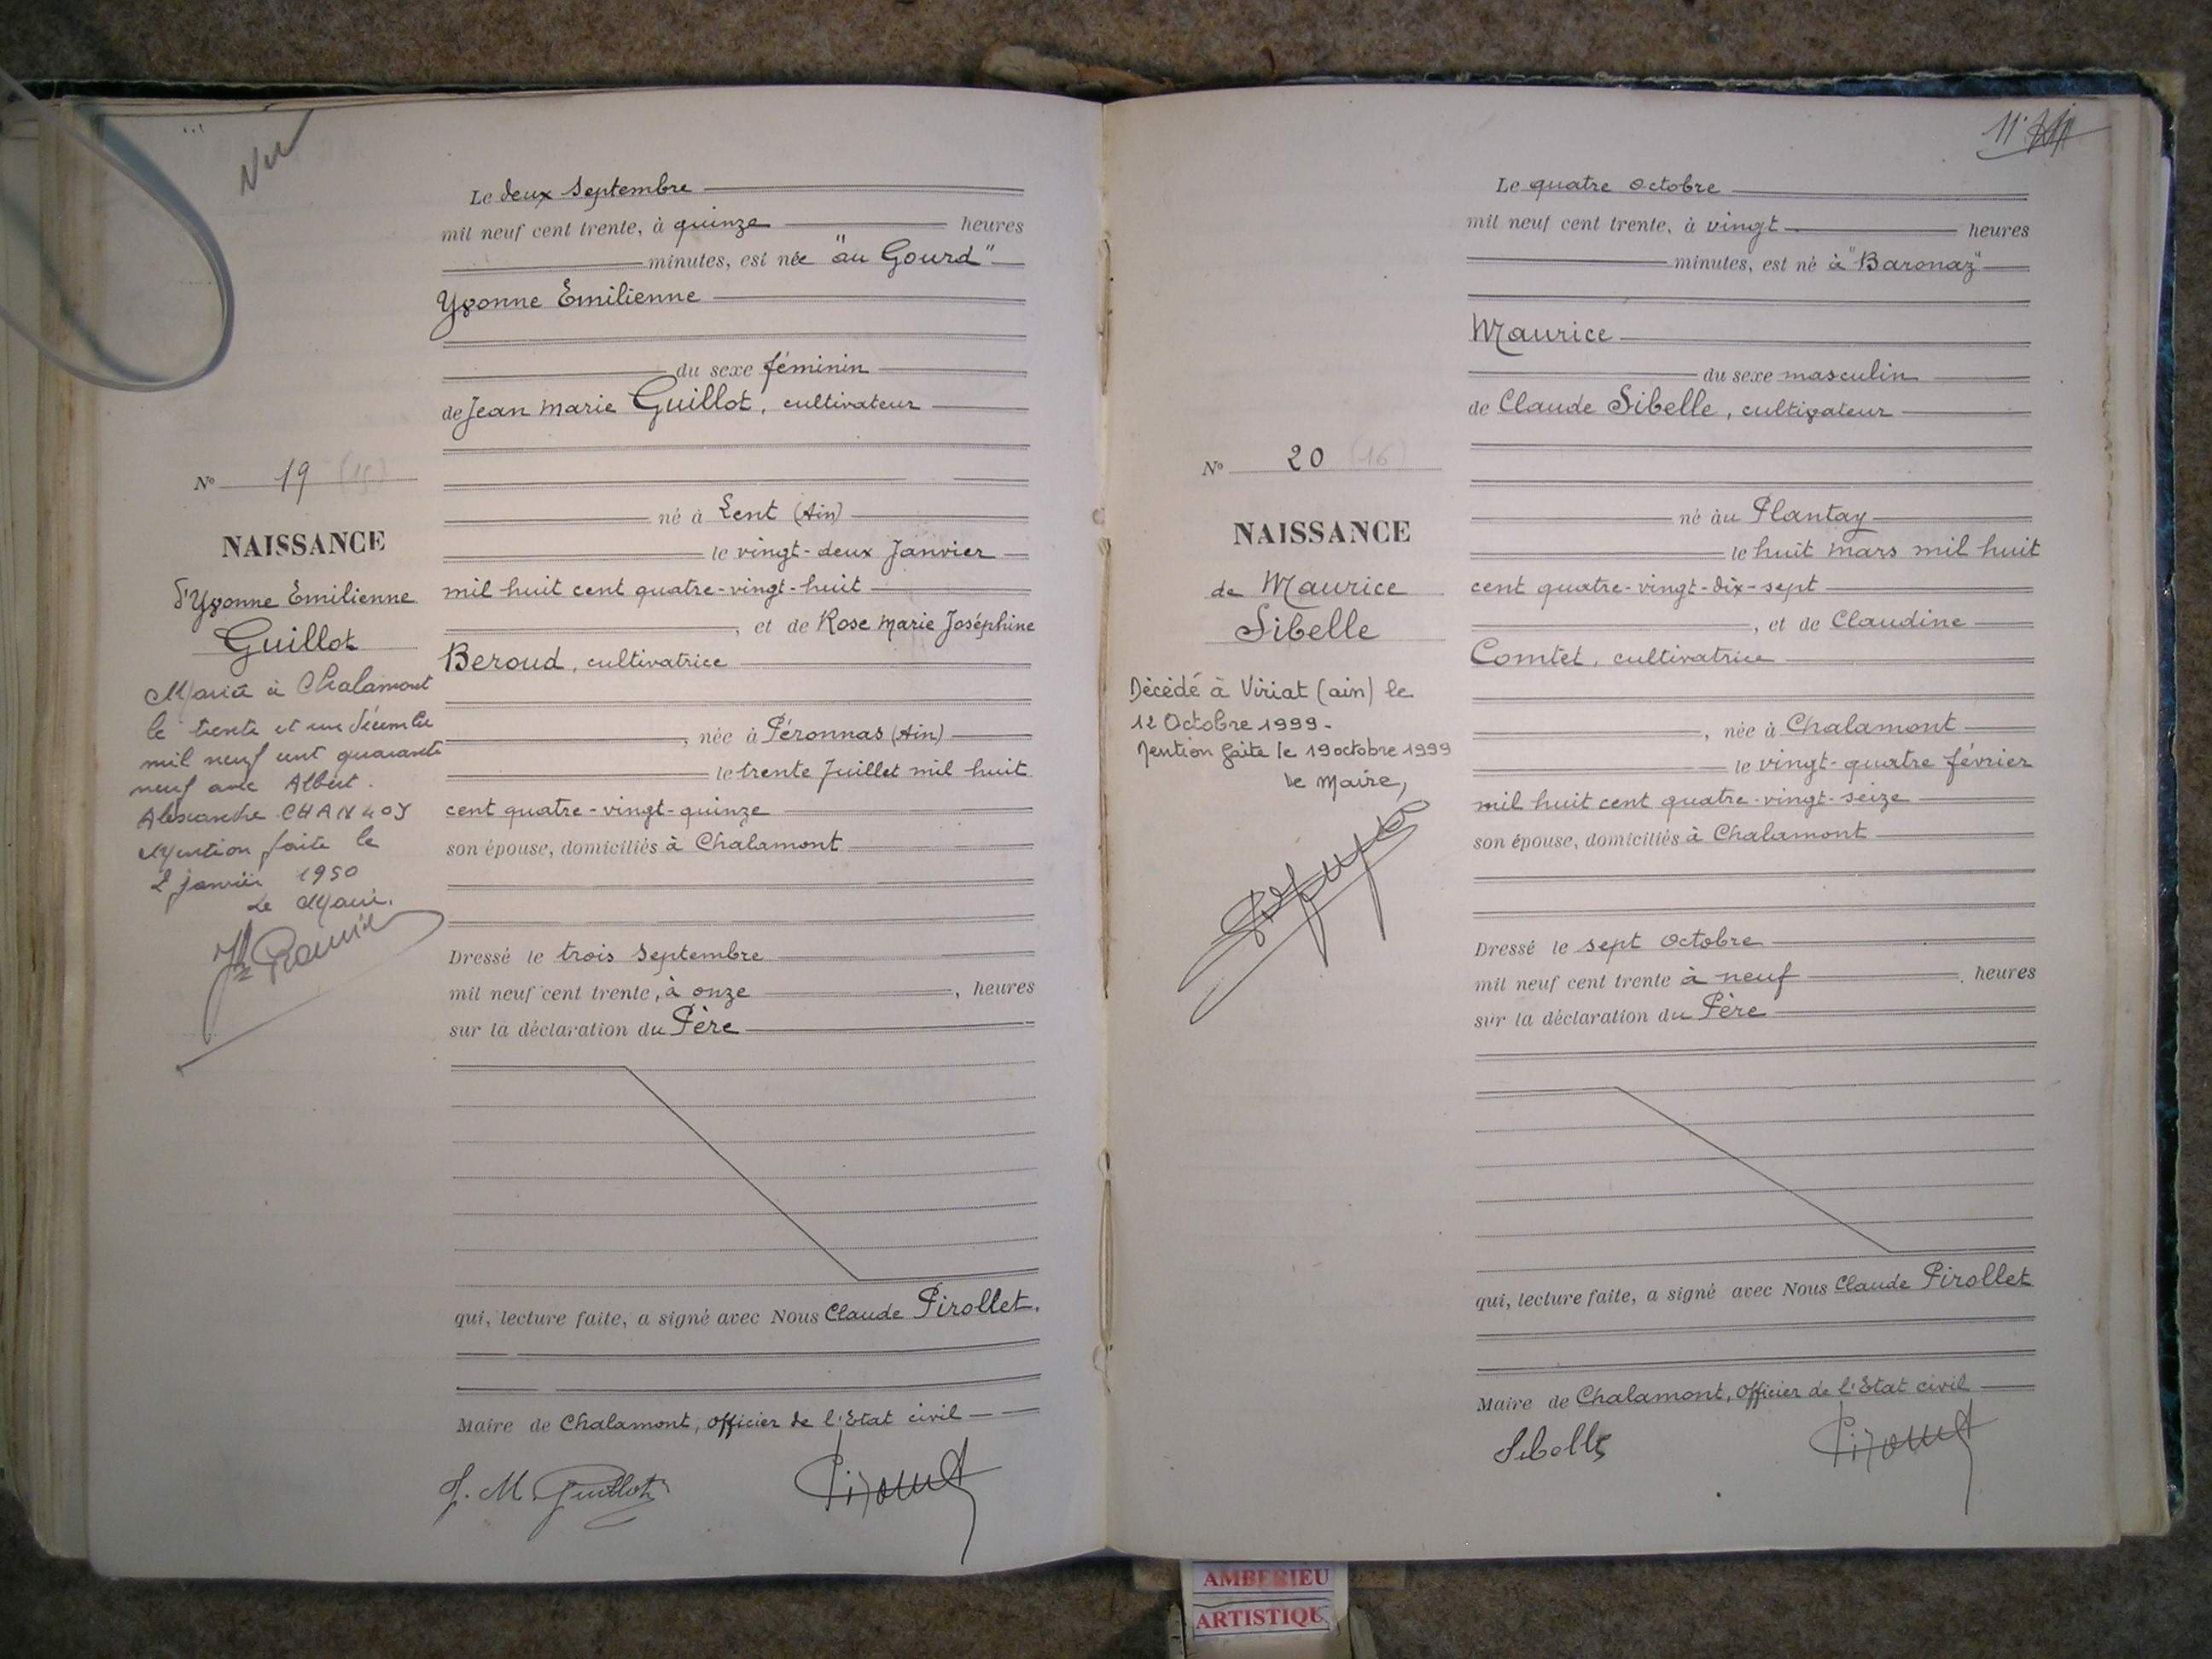 Vu
Le deux Septembre
mil neuf cent trente, à quinze heures
minutes, est née "au Gourd"
Yvonne Emilienne
du sexe féminin
de Jean Marie Guillot, cultivateur
né à Lent (Ain)
le vingt-deux Janvier
mil huit cent quatre-vingt-huit
, et de Rose Marie Joséphine
Beroud, cultivatrice
, née à Péronnas (Ain)
le trente Juillet mil huit
cent quatre-vingt-quinze
son épouse, domiciliés à Chalamont
Dressé le trois Septembre
mil neuf cent trente, à onze , heures
sur la déclaration du Père
qui, lecture faite, a signé avec Nous Claude Pirollet.
Maire de Chalamont, Officier de l'Etat civil
J. M. Guillot
N° 19 (15)
NAISSANCE
d'Yvonne Emilienne
Guillot
Mariée à Chalamont
le trente et un décembre
mil neuf cent quarante
neuf avec Albert
Alexandre
Mention faite le
2 janvier 1950
Le Maire.
11
Le quatre Octobre
mil neuf cent trente, à vingt heures
minutes, est né à "Baronaz"
Maurice
du sexe masculin
de Claude Sibelle, cultivateur
né au Plantay
le huit Mars mil huit
cent quatre-vingt-dix-sept
, et de Claudine
Comtet, cultivatrice
, née à Chalamont
le vingt-quatre février
mil huit cent quatre-vingt-seize
son épouse, domiciliés à Chalamont
Dressé le sept Octobre
mil neuf cent trente à neuf heures
sur la déclaration du Père
qui, lecture faite, a signé avec Nous Claude Pirollet
Maire de Chalamont, Officier de l'Etat civil
Sibelle
N° 20 (16)
NAISSANCE
de Maurice
Sibelle
Décédé à Viriat (ain) le
12 Octobre 1999-
Mention faite le 19 octobre 1999
Le Maire,
AMBERIEU
ARTISTIQU